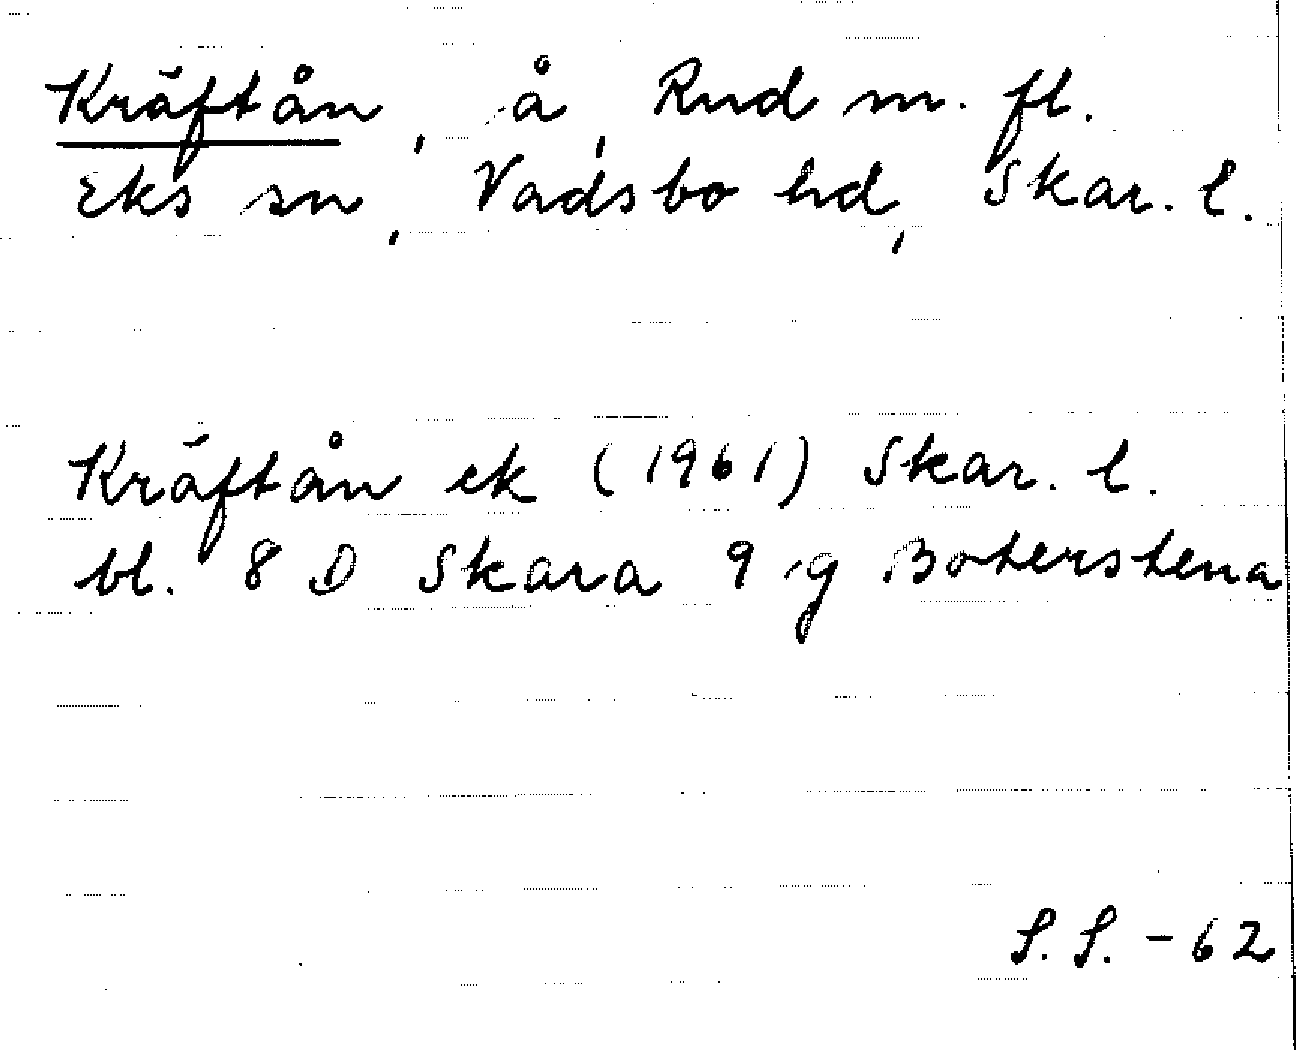 Kräftån, å, Rud m. fl.
Eks sn, Vadsbo hd, Skar. l.
Kräftån ek (1961) Skar. l.
bl. 8 D Skara 9 g Boterstena
S.S. - 62